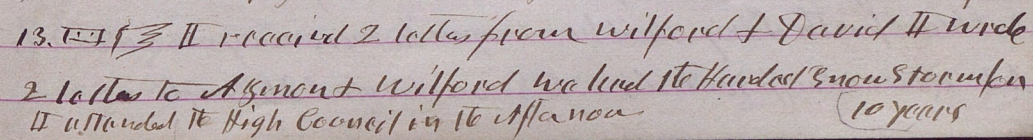 13. I received 2 letters from Wilford & David I wrote
2 letters to Asmon & Wilford we had the Hardest Snow Storm for
I attended the High Council in the Afternoon 10 years